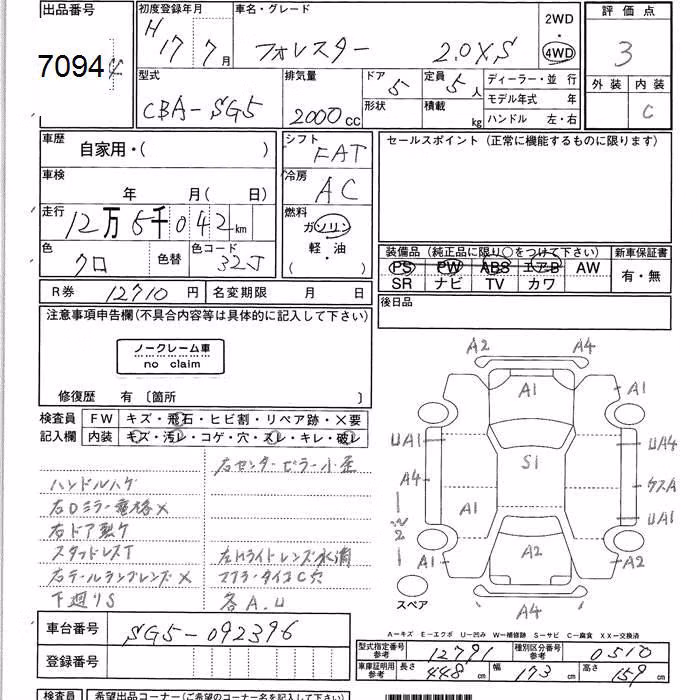 出品番号 初度登録年月 車名・グレード 2WD 評価点
7094 H17 7月 フォレスター 2.0XS ・ 3
4WD
型式 排気量 ドア 5 定員 5人 ディーラー・並 行 外装 内装
CBA-SG5 2000cc 形状 積載 kg モデル年式 年 C
ハンドル 左・右
車歴 自家用・( ) シフト FAT セールスポイント(正常に機能するものに限ります)
車検 年 月( 日) 冷房 AC
走行 12万5千042km 燃料 ガソリン
色 クロ 色替 色コード 32J 軽・油
( )
装備品(純正品に限り○をつけて下さい) 新車保証書
PS PW ABS エアB AW 有・無
SR ナビ TV カワ
R券 12710円 名変期限 月 日 後日品
注意事項申告欄(不具合内容等は具体的に記入して下さい)
ノークレーム車
no claim
修復歴 有 〔箇所 〕
検査員 FW キズ・飛石・ヒビ割・リペア跡・×要
記入欄 内装 キズ・汚レ・コゲ・穴・スレ・キレ・破レ
右センターピラー小歪
ハンドルハゲ
右Dミラー電格×
右ドア
スタッドレスT 左Hライトレンズ水滴
右テールランプレンズ× マフラータイコC穴
下廻りS 各A.U
A2 A4
A1 A1
UA1 UA4
S1
A4 クスA
A1 UA1
A1 A2 A2
スペア A4
A-キズ E-エクボ U-凹み W-補修跡 S-サビ C-腐食 XX-交換済
車台番号 SG5-092396
型式指定番号 参考 12791 種別区分番号 参考 0510
登録番号
車庫証明用 参考 長さ 448cm 幅 173cm 高さ 159cm
検査員 希望出品コーナー(ご希望のコーナー名を記入して下さい)